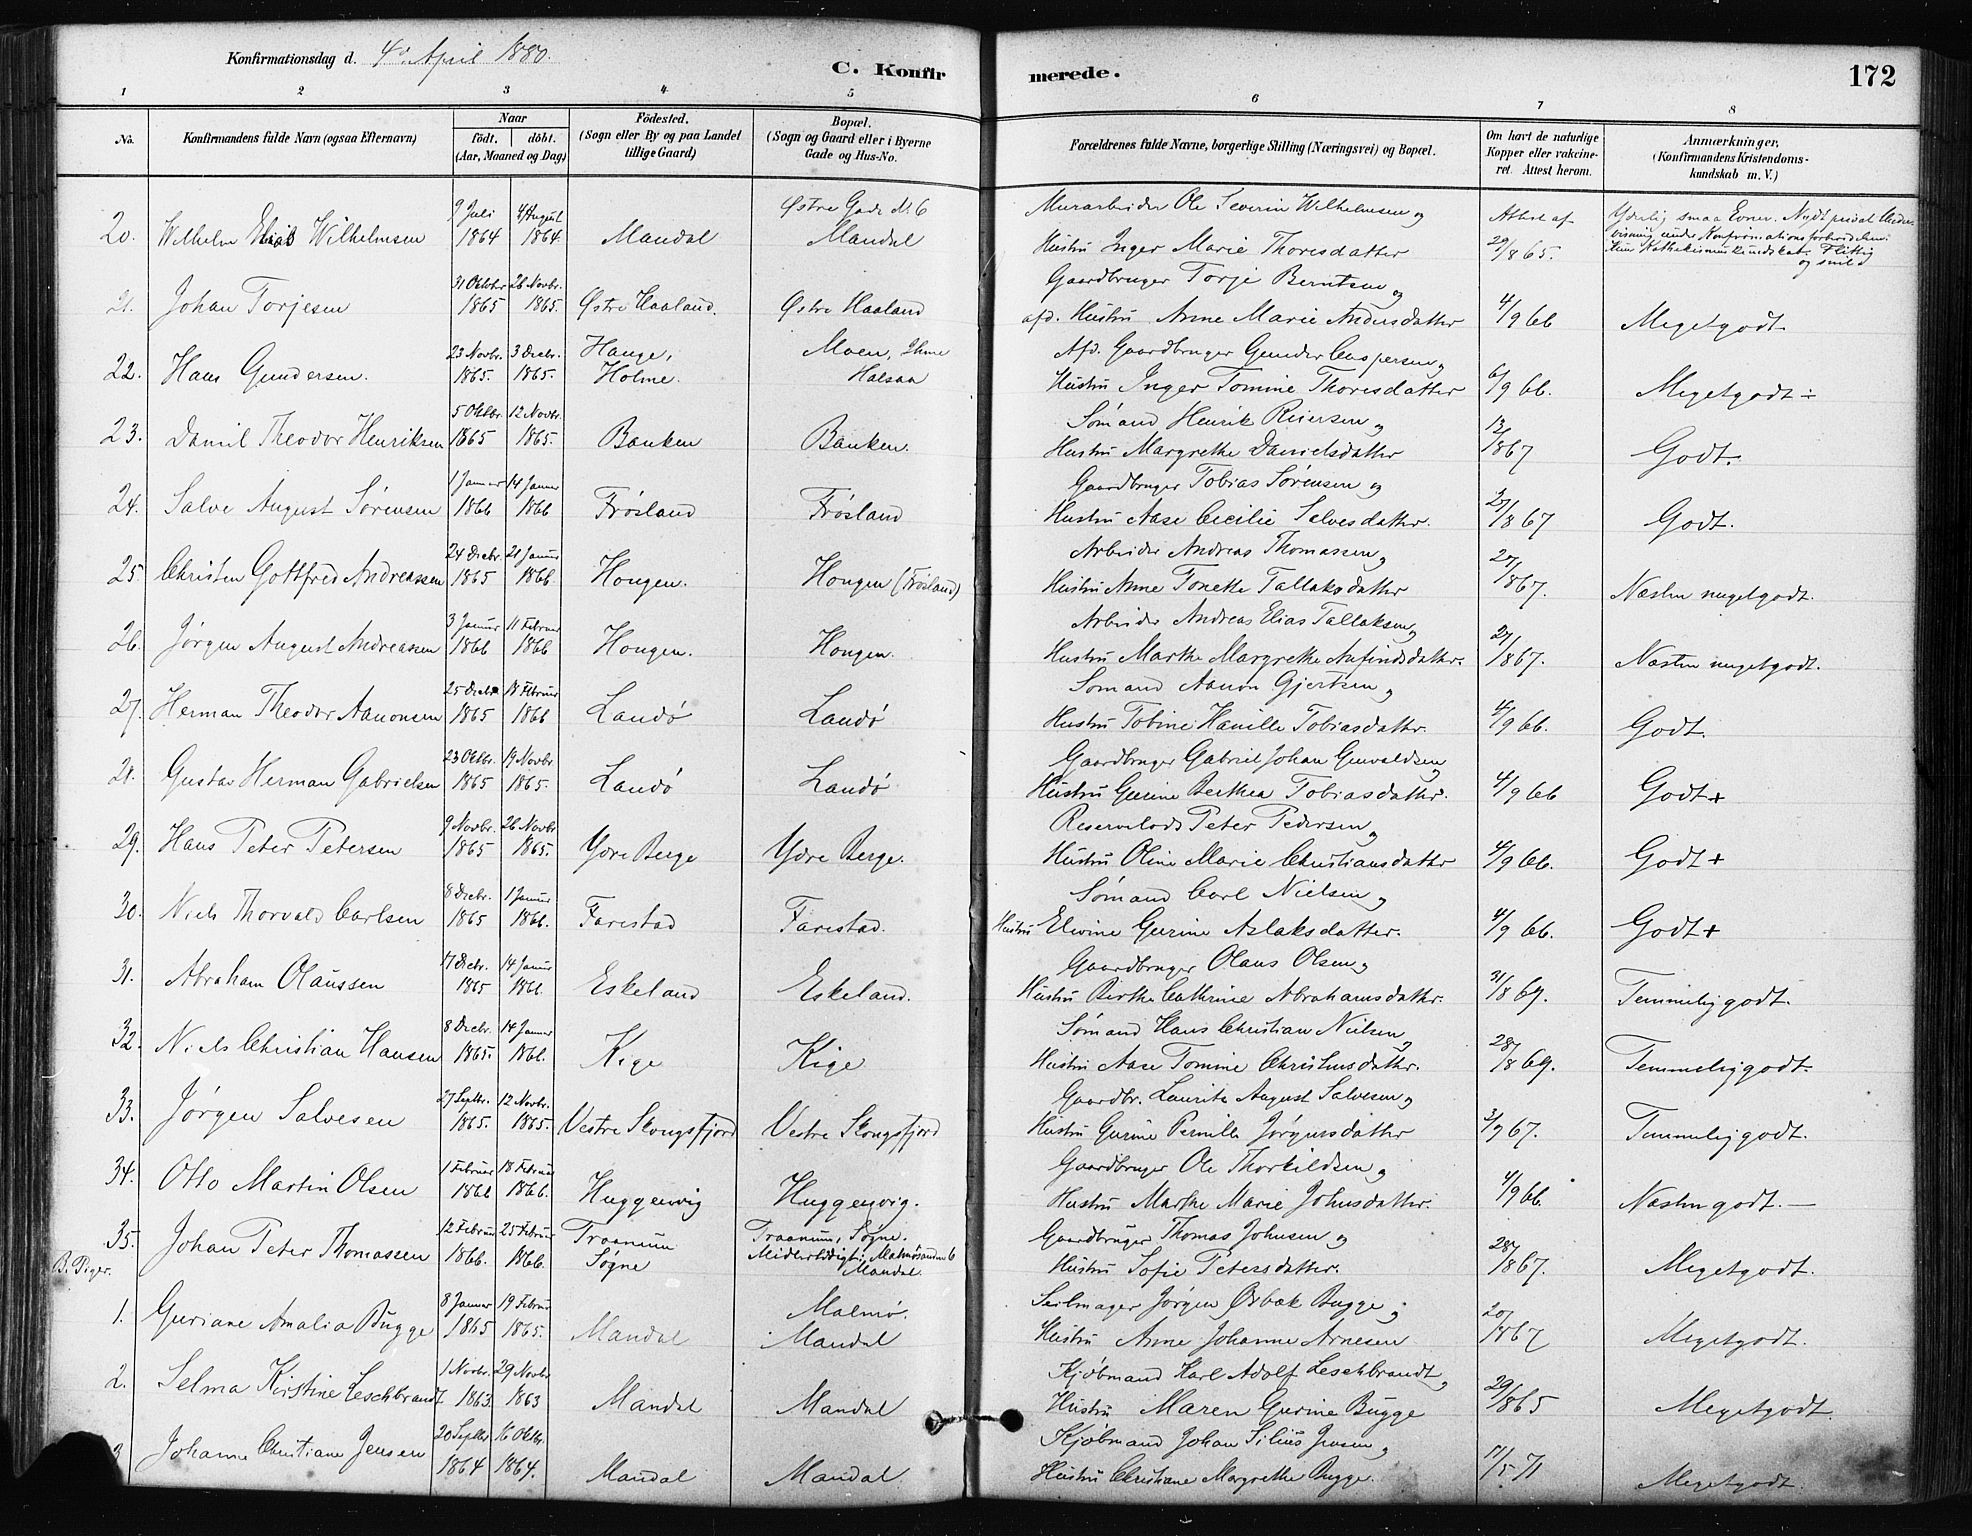 Konfirmationsdag d. 4de April 1880.
C. Konfirmerede.
172
1 2 3 4 5 6 7 8
No. Konfirmandens fulde Navn (ogsaa Efternavn) Naar født. døbt. (Aar, Maaned og Dag) Fødested. (Sogn eller By og paa Landet tillige Gaard) Bopæl. (Sogn og Gaard eller i Byerne Gade og Hus-No. Forældrenes fulde Navne, borgerlige Stilling (Næringsvei) og Bopæl. Om havt de naturlige Kopper eller vakcineret. Attest herom. Anmærkninger, (Konfirmandens Kristendomskundskab m. V.)
9 Juli 4 August Østre Gade N. 6 Murarbeider Ole Severin Wilhelmsen og Attest af Yderlig smaa Evner. Nydt privat Undervisning under Konfirmationsforberedelsen.
20. Wilhelm Elias Wilhelmsen 1864 1864. Mandal Mandal Hustru Inger Marie Thoresdatter 29/8 65. Kun Kathekismuskundskab. Flittig og snild
31 Oktober 26 Novbr. Gaardbruger Torje Berntsen og
21. Johan Torjesen 1865 1865. Østre Haaland. Østre Haaland afd. Hustru Anne Marie Andersdatter 4/9 66 Megetgodt.
23 Novbr. 3 Decbr. Hauge, Moen, Halsaa Afd. Gaardbruger Gunder Caspersen og
22. Hans Gundersen. 1865. 1865. Holme. Hustru Inger Tomine Thoresdatter 6/9 66. Megetgodt ÷
5 Oktbr. 12 Novbr. Sømand Henrik Reiersen og
23. Daniel Theodor Henriksen 1865 1865. Banken Banken. Hustru Margrethe Danielsdatter 13/1867 Godt.
1 Januar 14 Januar Gaardbruger Tobias Sørensen og
24. Salve August Sørensen 1866 1866 Frøsland Frøsland Hustru Aase Cecilie Salvesdatter. 2/1867 Godt.
24 Decbr. 21 Januar Arbeider Andreas Thomassen og
25 Christen Gottfred Andreassen 1865 1866 Hougen. Hougen (Frøsland) Hustru Anne Tonette Tallaksdatter 27/1867. Næsten megetgodt.
3 Januar 11 Februar Arbeider Andreas Elias Tallaksen og
26. Jørgen August Andreassen 1866 1866 Hougen. Hougen. Hustru Marthe Margrethe Aufindsdatter. 27/1867. Næsten megetgodt.
25 Decbr 18 Februar Sømand Aanon Gjertsen og
27. Herman Theodor Aanonsen 1865 1866 Landø Landø Hustru Tobine Hanille Tobiasdatter. 4/9 66. Godt.
23 Oktbr. 19 Novbr Gaardbruger Gabriel Johan Gunvaldsen og
28. Gustav Herman Gabrielsen 1865 1865. Landø Landø Hustru Gurine Berthea Tobiasdatter. 4/9 66 Godt +
9 Novbr. 26 Novbr Reservelods Peter Pedersen og
29. Hans Peter Petersen 1865 1865. Ydre Berge Ydre Berge. Hustru Oline Marie Christiansdatter 4/9 66. Godt +
8 Decbr. 1 Januar Sømand Carl Nielsen og
30. Niels Thorvald Carlsen 1865 1866. Farestad Farestad. Hustru Elevine Gurine Aslaksdatter. 4/9 66. Godt +
17 Decbr. 14 Januar Gaardbruger Olaus Olsen og
31. Abraham Olaussen 1865 1866. Eskeland Eskeland. Hustru Birthe Cathrine Abrahamsdatter. 31/8 69. Temmeliggodt.
8 Decbr. 14 Januar Sømand Hans Christian Nielsen og
32. Niels Christian Hansen 1865. 1866. Kige Kige Hustru Aase Tomine Christensdatter. 28/8 69. Temmeliggodt.
27 Septbr. 12 Novbr. Gaardbr. Laurits August Salvesen og
33. Jørgen Salvesen 1865. 1865. Vestre Skougsfjord Vestre Skougsfjord Hustru Gurine Pernille Jørgensdatter 3/9 67. Temmeliggodt.
1 Februar 18 Februar Gaardbruger Ole Thorkildsen og
34. Otto Martin Olsen 1866 1866. Huggenvig Huggenvig. Hustru Marthe Marie Johnsdatter. 4/9 66. Næstengodt. —
12 Februar 25 Februar Traanum Traanum, Søgne. Gaardbruger Thomas Johnsen og
35. Johan Peter Thomassen 1866. 1866. Søgne Midlertidigt: Malmøsanden 6 Mandal. Hustru Sofie Petersdatter. 28/1867. Megetgodt.
B. Piger.
8 Januar 19 Februar Malmø. Seilmager Jørgen Orbæk Bugge og
1. Guriane Amalia Bugge 1865 1865. Mandal Mandal Hustru Anne Johanne Arnesen 20/1867 Megetgodt.
1 Novbr. 29 Novbr Kjøbmand Karl Adolf Leschbrandt og
2. Selma Kirstine Leschbrandt 1863. 1863 Mandal Mandal Hustru Maren Gurine Bugge 29/1865 Megetgodt.
20 Septbr 16 Oktbr. Kjøbmand Johan Silius Jensen og
3 Johanne Christiane Jensen 1864 1864. Mandal Mandal. Hustru Christiane Margrethe Bugge. 17/5 71 Megetgodt.